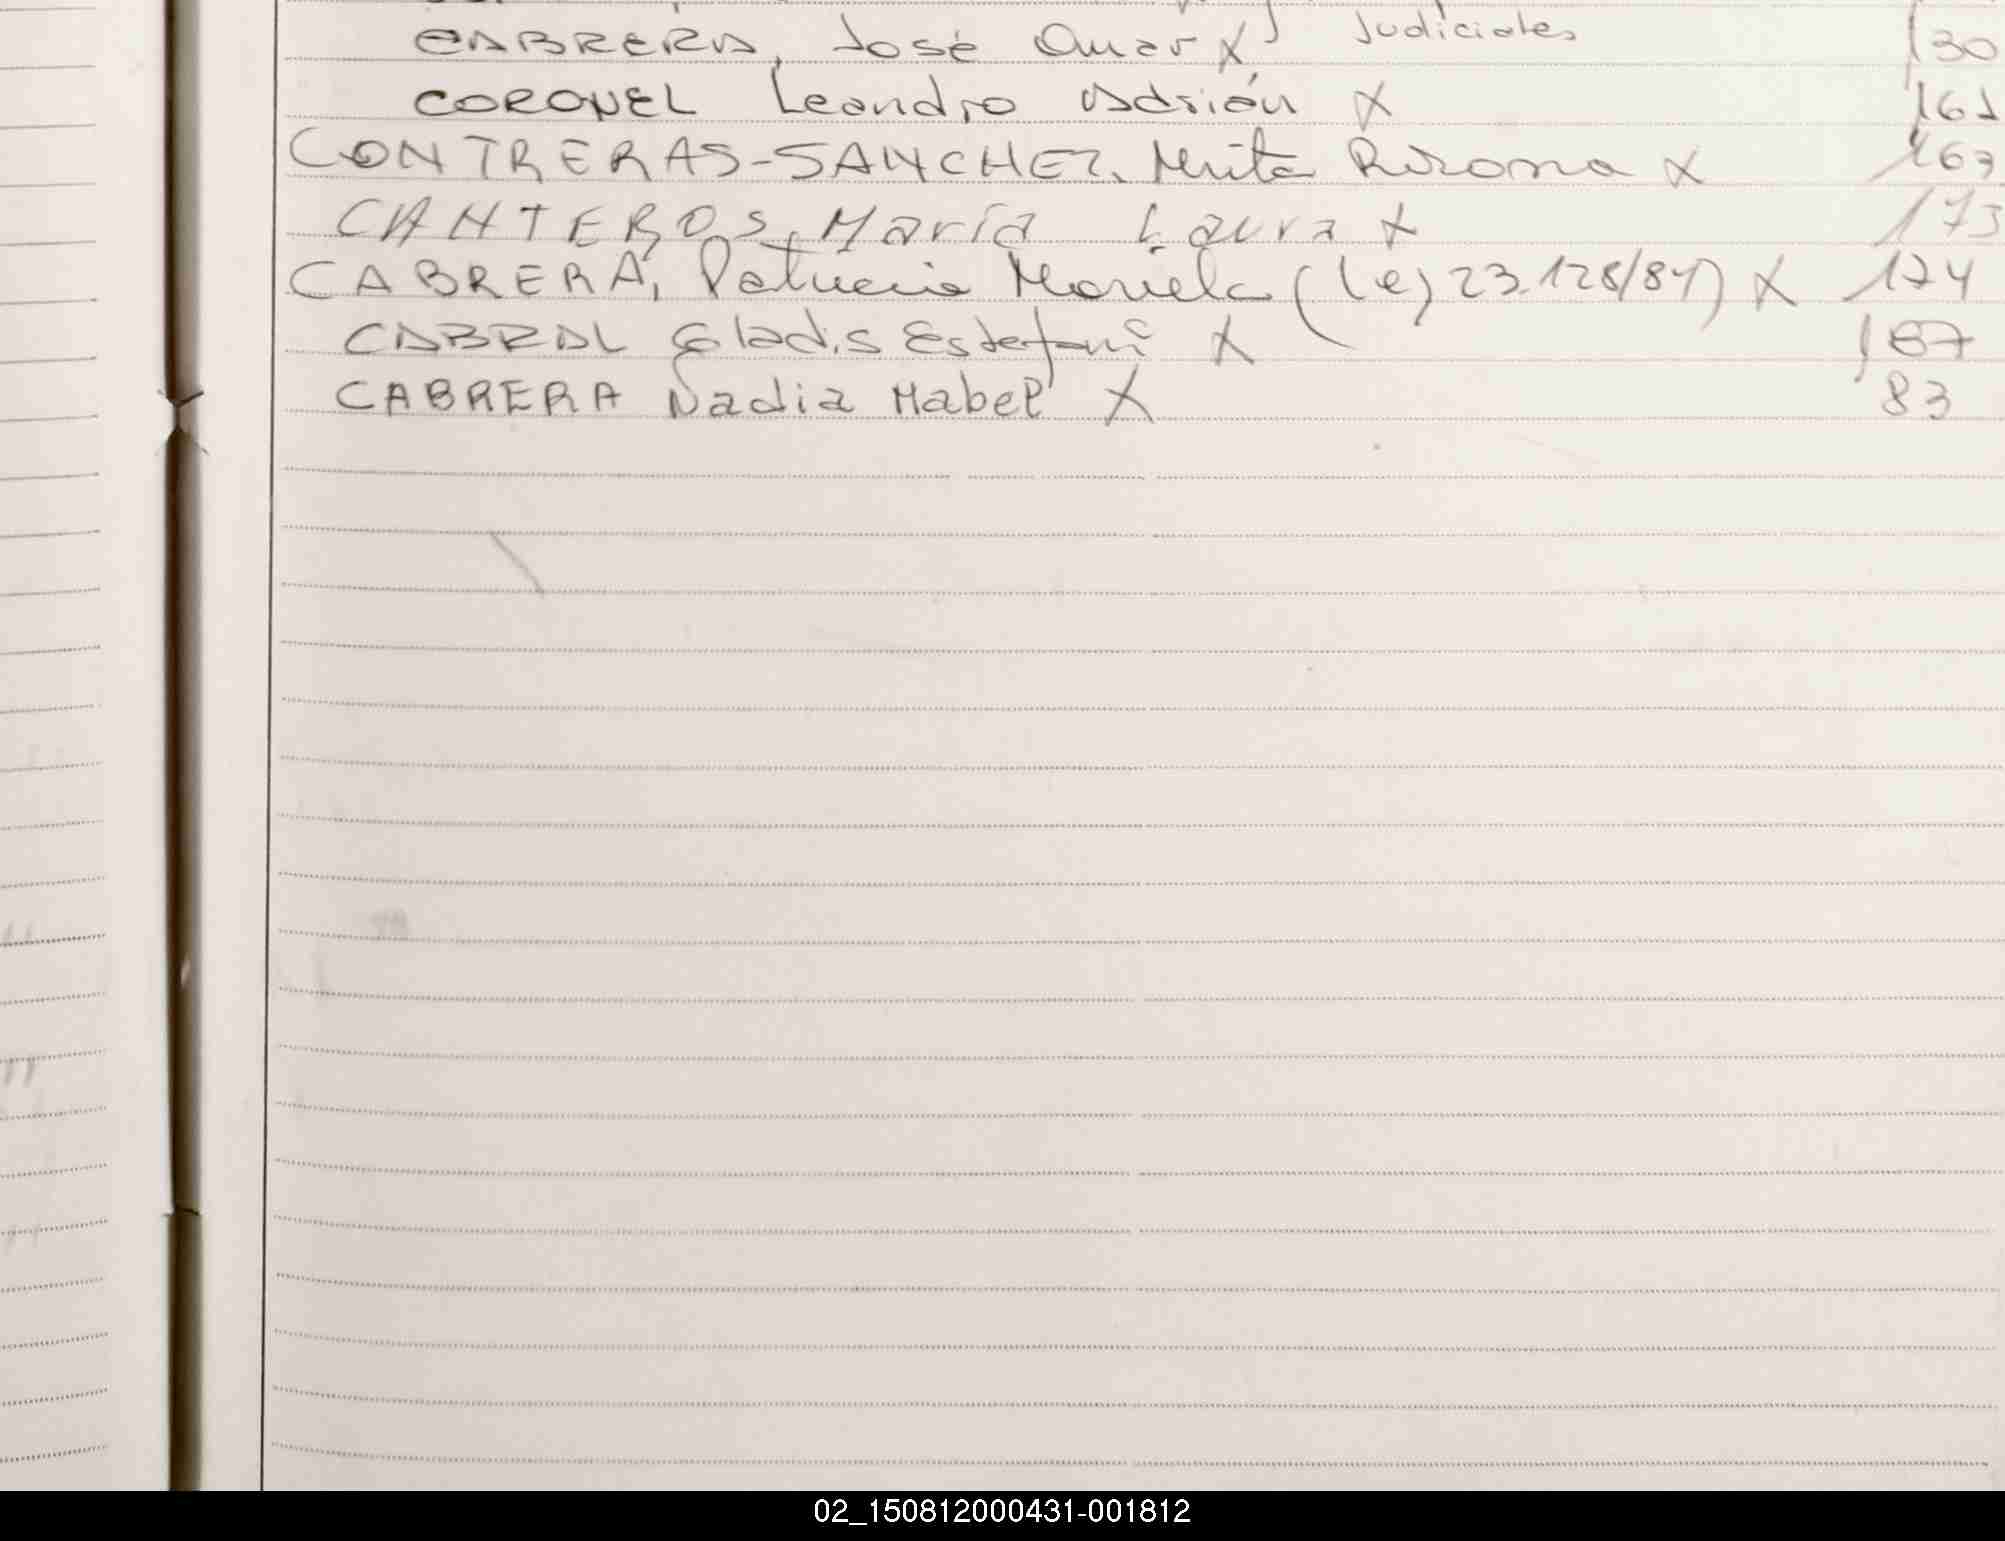 CABRERA, José Omar X Judiciales 130
CORONEL Leandro Adrián X 161
CONTRERAS-SANCHEZ, Mirta Romona X 163
CANTEROS, María Laura X 173
CABRERA, Patricia Mariela (Ley 23.128/84) X 174
CABRAL Gladis Estefani X 187
CABRERA Nadia Mabel X 83
02_150812000431-001812